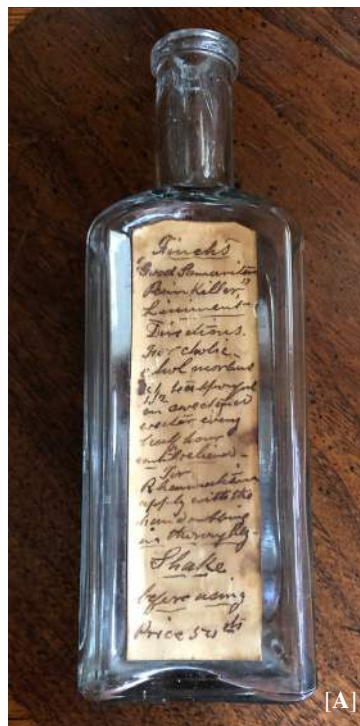 Finch's
"Good Samaritan
Pain Killer"
Liniment-
Directions.
For cholic-
chol morbus
1/2 teaspoonful
in sweetened
water every
half hour
until relieved-
For
Rheumatism
apply with the
hand rubbing
in thoroughly-
Shake
before using
Price 50 cts
[A]